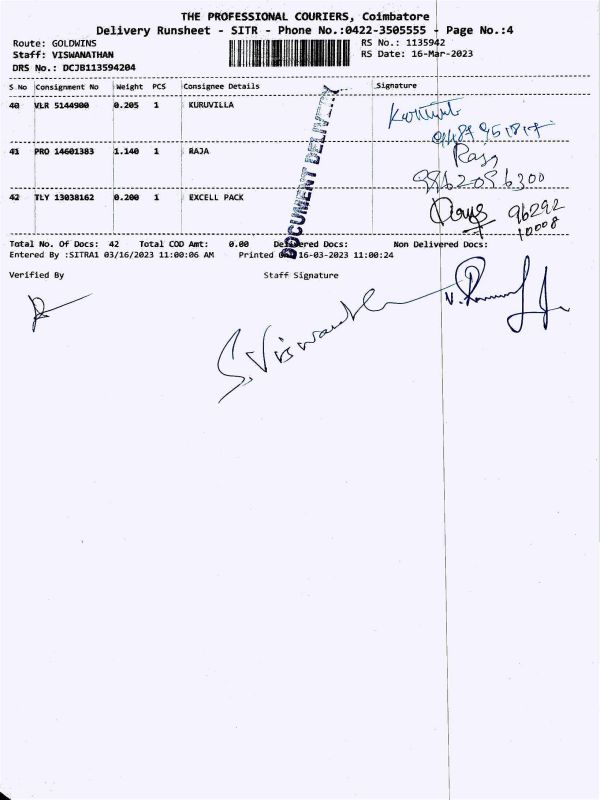 THE PROFESSIONAL COURIERS, Coimbatore
Delivery Runsheet - SITR - Phone No.:0422-3505555 - Page No.:4
Route: GOLDWINS
Staff: VISWANATHAN
DRS No.: DCJB113594204
RS No.: 1135942
RS Date: 16-Mar-2023
S No Consignment No Weight PCS Consignee Details Signature
40 VLR 5144900 0.205 1 KURUVILLA
41 PRO 14601383 1.140 1 RAJA
Raja
9862056300
42 TLY 13038162 0.200 1 EXCELL PACK
96292
10008
DOCUMENT DELIVERY
Total No. Of Docs: 42 Total COD Amt: 0.00 Delivered Docs: Non Delivered Docs:
Entered By :SITRA1 03/16/2023 11:00:06 AM Printed On: 16-03-2023 11:00:24
Verified By Staff Signature
S. Viswanath